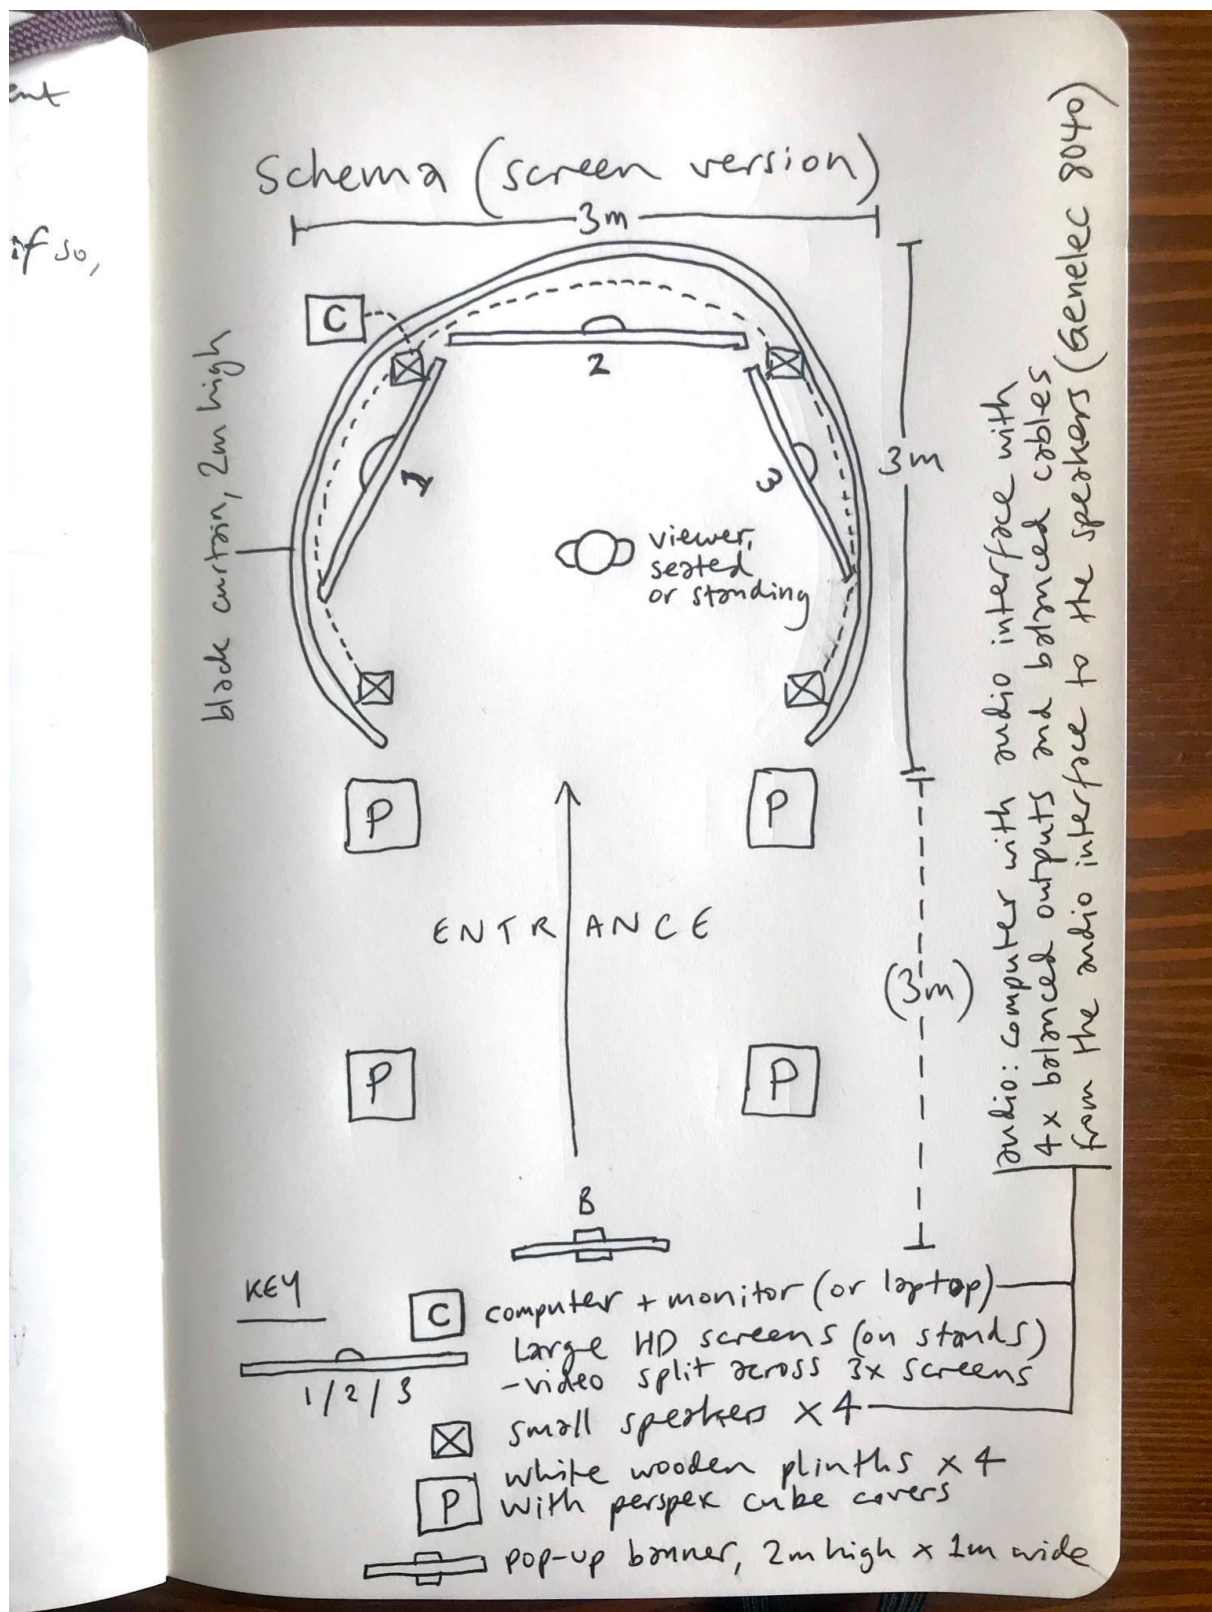 ent
if so,
Schema (screen version)
3m
C
2
1
3
3m
black curtain, 2m high
viewer,
seated
or standing
P
P
ENTRANCE
(3m)
P
P
B
audio: computer with audio interface with
4x balanced outputs and balanced cables
from the audio interface to the speakers (Genelec 8040)
KEY
C computer + monitor (or laptop)
large HD screens (on stands)
- video split across 3x screens
1/2/3
small speakers x 4
white wooden plinths x 4
P with perspex cube covers
pop-up banner, 2m high x 1m wide